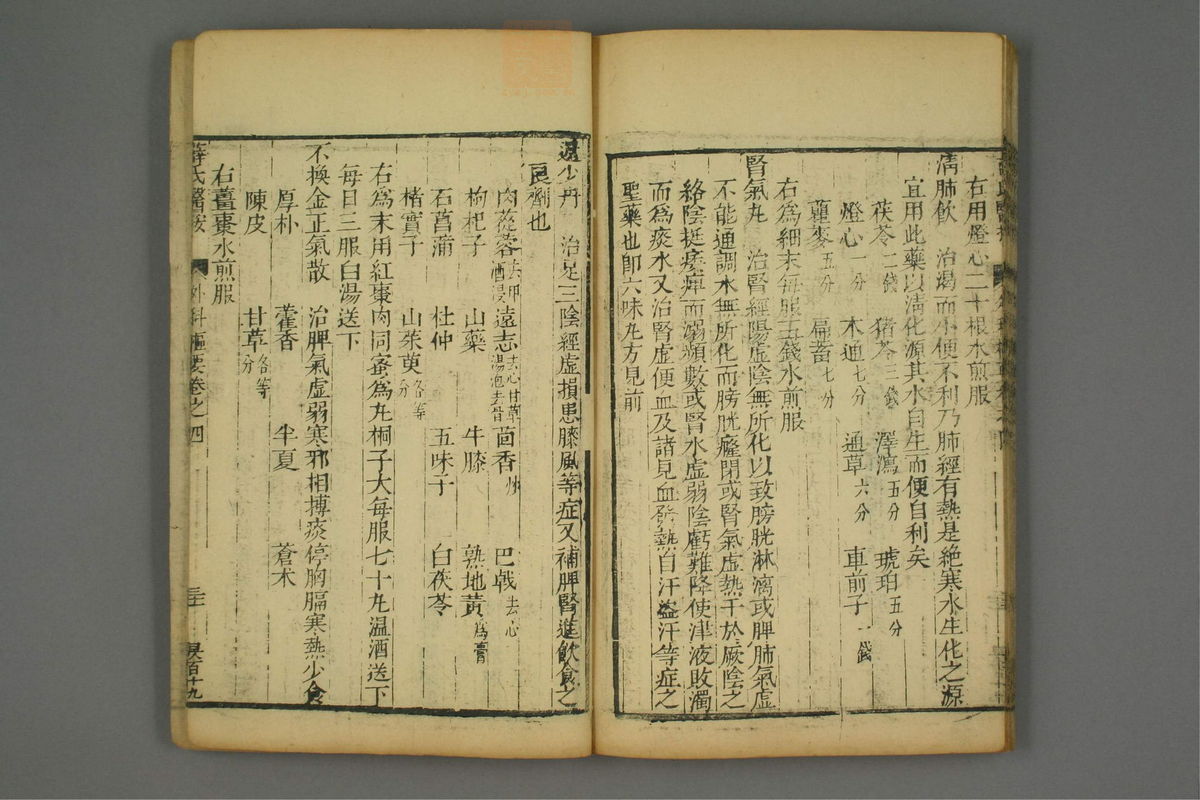 右用燈心二十根水煎服
清肺飲 治渴而小便不利乃肺經有熱是絶寒水生化之源
宜用此藥以清化源其水自生而便自利矣
茯苓二錢 猪苓三錢 澤瀉五分 琥珀五分
燈心一分 木通七分 通草六分 車前子一錢
瞿麥五分 萹蓄七分
右為細末每服五錢水煎服
腎氣丸 治腎經陽虛陰無所化以致膀胱淋漓或脾肺氣虛
不能通調水無所化而膀胱癃閉或腎氣虛熱干於厥陰之
絡陰挺痿痺而溺頻數或腎水虛弱陰虧難降使津液敗濁
而為痰水又治腎虛便血及諸見血發熱自汗盜汗等症之
聖藥也卽六味丸方見前
還少丹 治足三陰經虛損患膝風等症又補脾腎進飲食之
良劑也
肉蓯蓉去甲酒浸 遠志去心甘草湯泡去骨 茴香炒 巴戟去心
枸杞子 山藥 牛膝 熟地黃為膏
石菖蒲 杜仲 五味子 白茯苓
楮實子 山茱萸各等分
右為末用紅棗肉同蜜為丸桐子大每服七十丸温酒送下
每日三服白湯送下
不換金正氣散 治脾氣虛弱寒邪相搏痰停胸膈寒熱少食
厚朴 藿香 半夏 蒼术
陳皮 甘草各等分
右薑棗水煎服
薛氏醫按 外科樞要卷之四